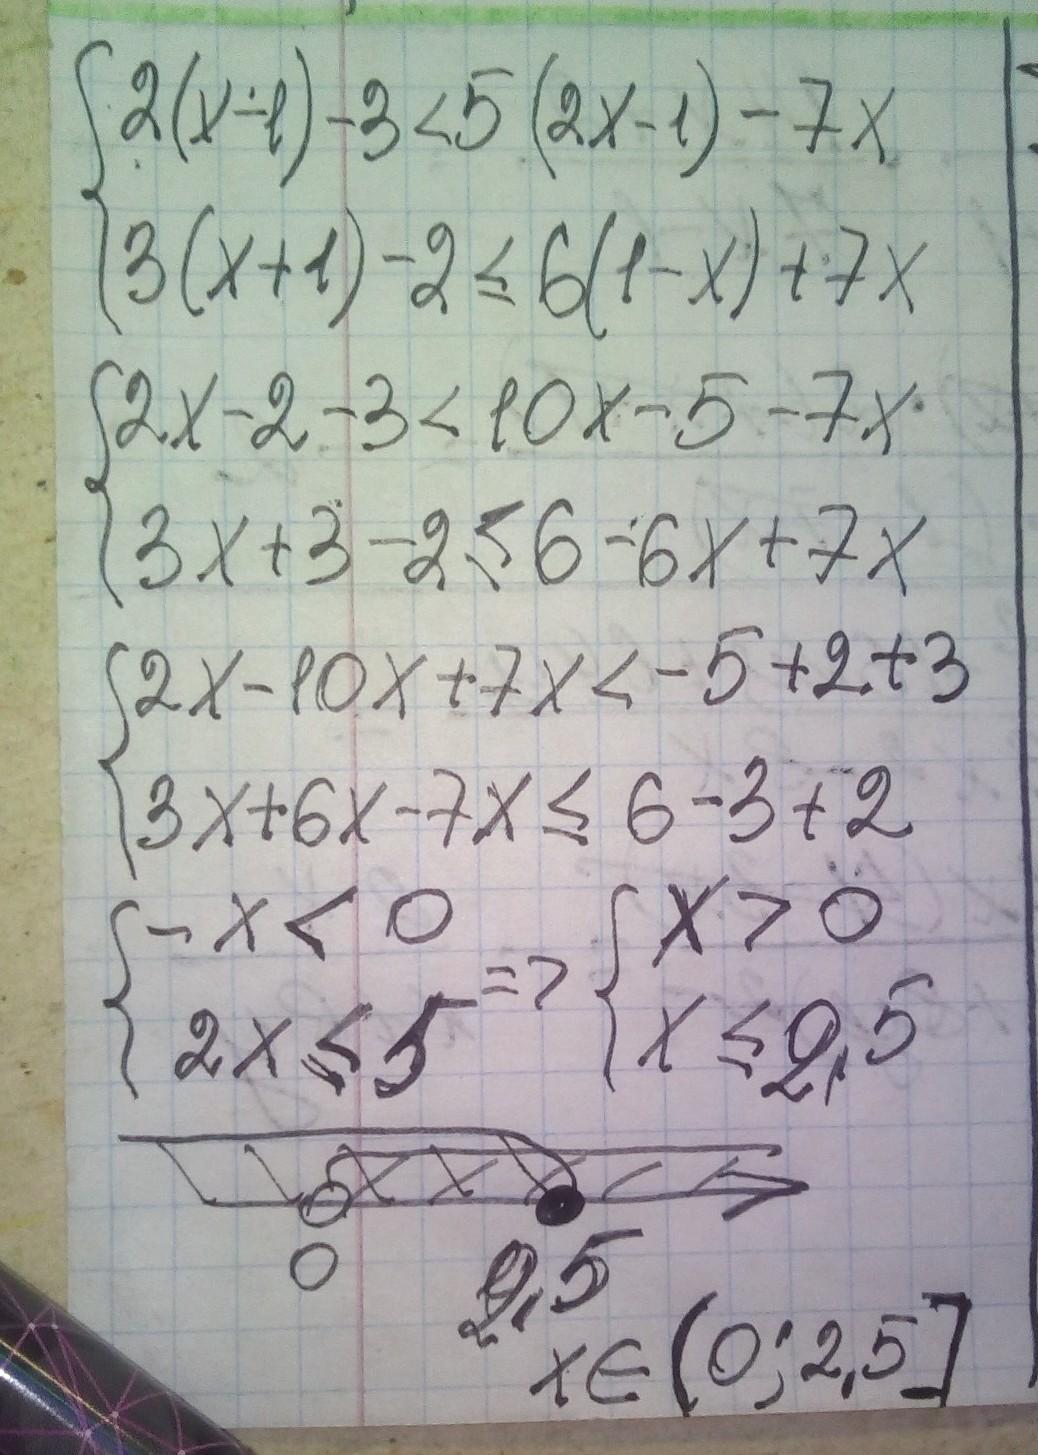 2(x-1)-3<5(2x-1)-7x
3(x+1)-2≤6(1-x)+7x
2x-2-3<10x-5-7x
3x+3-2≤6-6x+7x
2x-10x+7x<-5+2+3
3x+6x-7x≤6-3+2
-x<0 => x>0
2x≤5 x≤2,5
0 2,5
x∈(0;2,5]